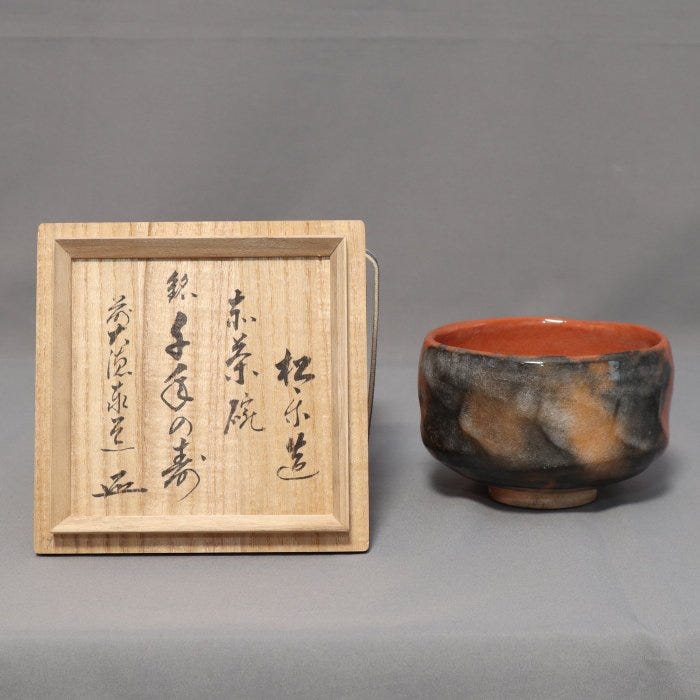 松楽造
赤茶碗
銘 千年の寿
前大徳泰道